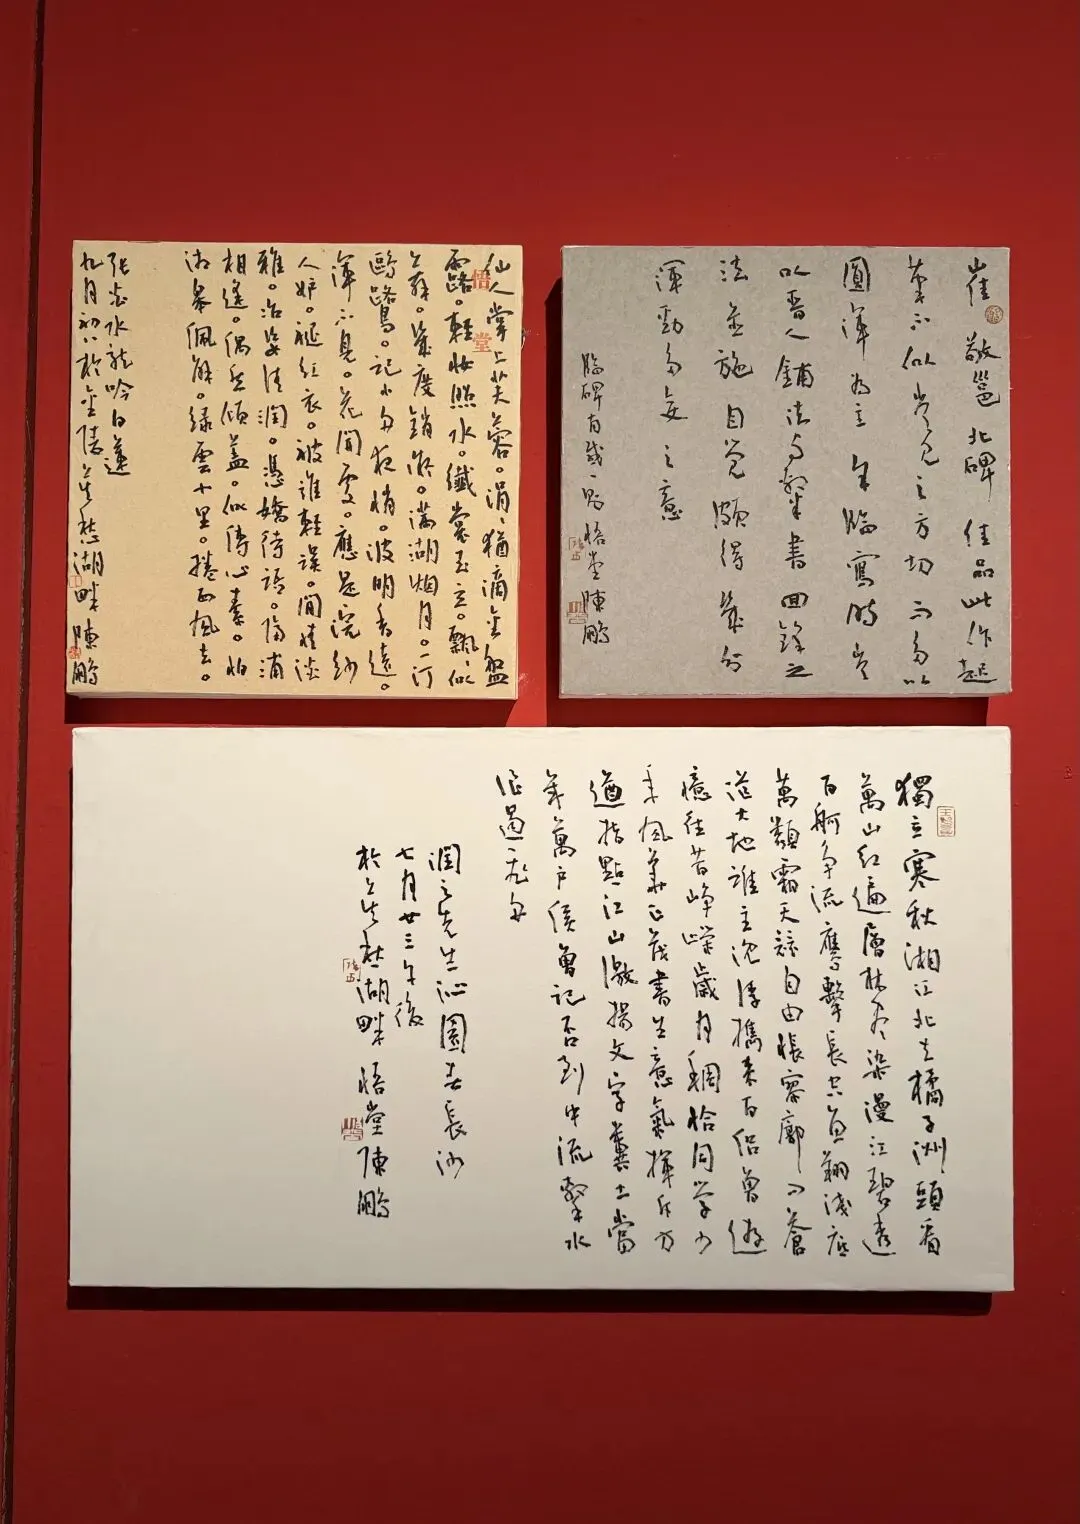 崔敬邕北碑佳品此作起
筆不似常見之方切而多以
圓渾為主余臨寫時嘗
以晉人鋪法与聚筆書回鋒之
法並施自覺頗得幾分
渾勁多姿之意
臨碑有感一則悟堂陳鵬
仙人掌上芙蓉。涓涓猶滴金盤
露。輕妝照水。纖裳玉立。飄飄似
舞。幾度銷凝。滿湖烟月。一汀
鷗鷺。記小舟夜悄。波明香遠。
渾不見。花開處。應是浣紗
人妒。褪紅衣。被誰輕誤。閒情淡
雅。冶姿清潤。憑嬌待語。隔浦
相逢。偶然傾蓋。似傳心素。怕
湘皋佩解。綠雲十里。捲西風去。
張炎水龍吟白蓮
九月初八於金陵莫愁湖畔陳鵬
悟堂
獨立寒秋湘江北去橘子洲頭看
萬山紅遍層林盡染漫江碧透
百舸爭流鷹擊長空魚翔淺底
萬類霜天競自由悵寥廓問蒼
茫大地誰主沈浮攜來百侶曾遊
憶往昔崢嶸歲月稠恰同學少
年風華正茂書生意氣揮斥方
遒指點江山激揚文字糞土當
年萬戶侯曾記否到中流擊水
浪遏飛舟
潤之先生沁園春長沙
七月廿三午後
於莫愁湖畔悟堂陳鵬